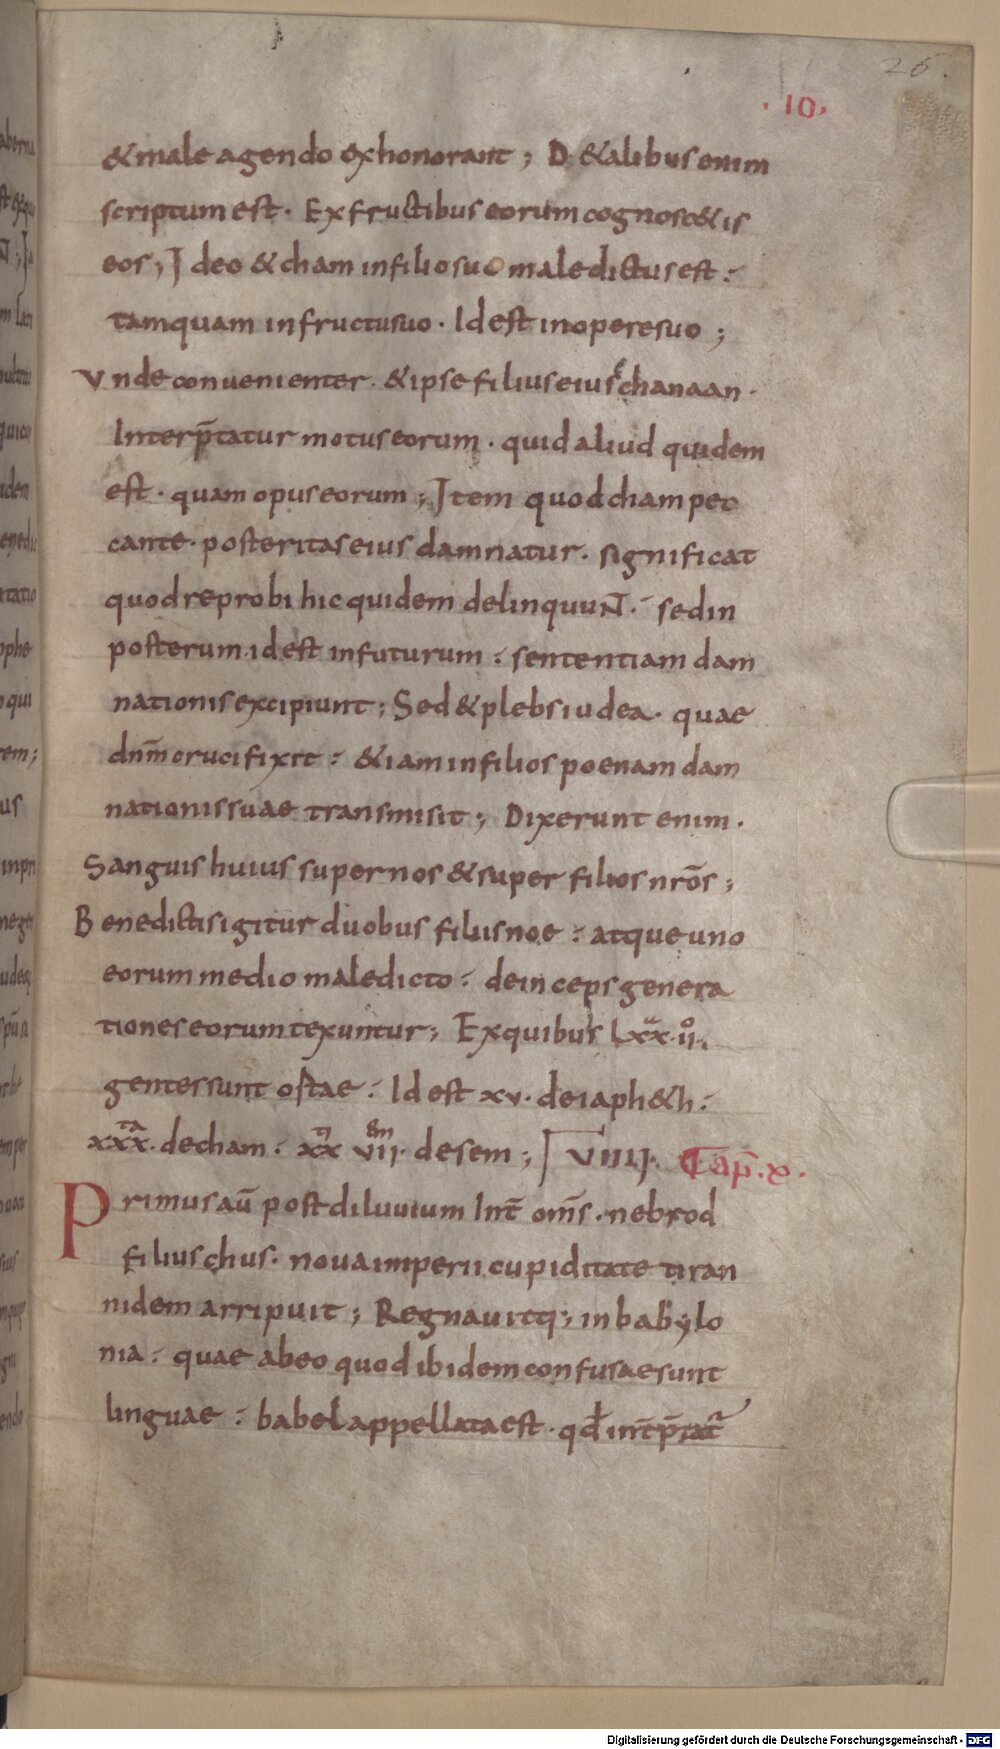 25.
·10·
& male agendo exhonorant; D& alibus enim
scriptum est. Ex fructibus eorum cognosc&is
eos; Ideo & cham in filio suo maledictus est:
tamquam in fructu suo. Id est in opere suo;
Vnde conuenienter. & ipse filius eius chanaan.
Interp̄tatur motus eorum. quid aliud quidem
est. quam opus eorum; Item quod cham pec
cante. posteritas eius damnatur. significat
quod reprobi hic quidem delinquuNT: sed in
posterum id est in futurum: sententiam dam
nationis excipiunt; Sed & plebs iudea. quae
dnm̄ crucifixit: & iam in filios poenam dam
nationis suae transmisit; Dixerunt enim.
Sanguis huius super nos & super filios nrōs;
Benedictis igitur duobus filiis noe: atque uno
eorum medio maledicto: deinceps genera
tiones eorum texuntur; Ex quibus Lxx. ii.
gentes sunt ostae: Id est xv. de iaph&h:
xxx. de cham: xx vii. de sem; VIIII. Cap̄. x.
Primus aū post diluuium Int̄ om̄s. nebrod
filius chus. noua imperii cupiditate tiran
nidem arripuit; Regnauitq; in babylo
nia: quae ab eo quod ibidem confusae sunt
linguae: babel appellata est. qd̄ int̄p̄tat̄
aberna
quicu
idem
enedic
itatio
ophe
qui
rem;
us
inpri
endo
Digitalisierung gefördert durch die Deutsche Forschungsgemeinschaft - DFG